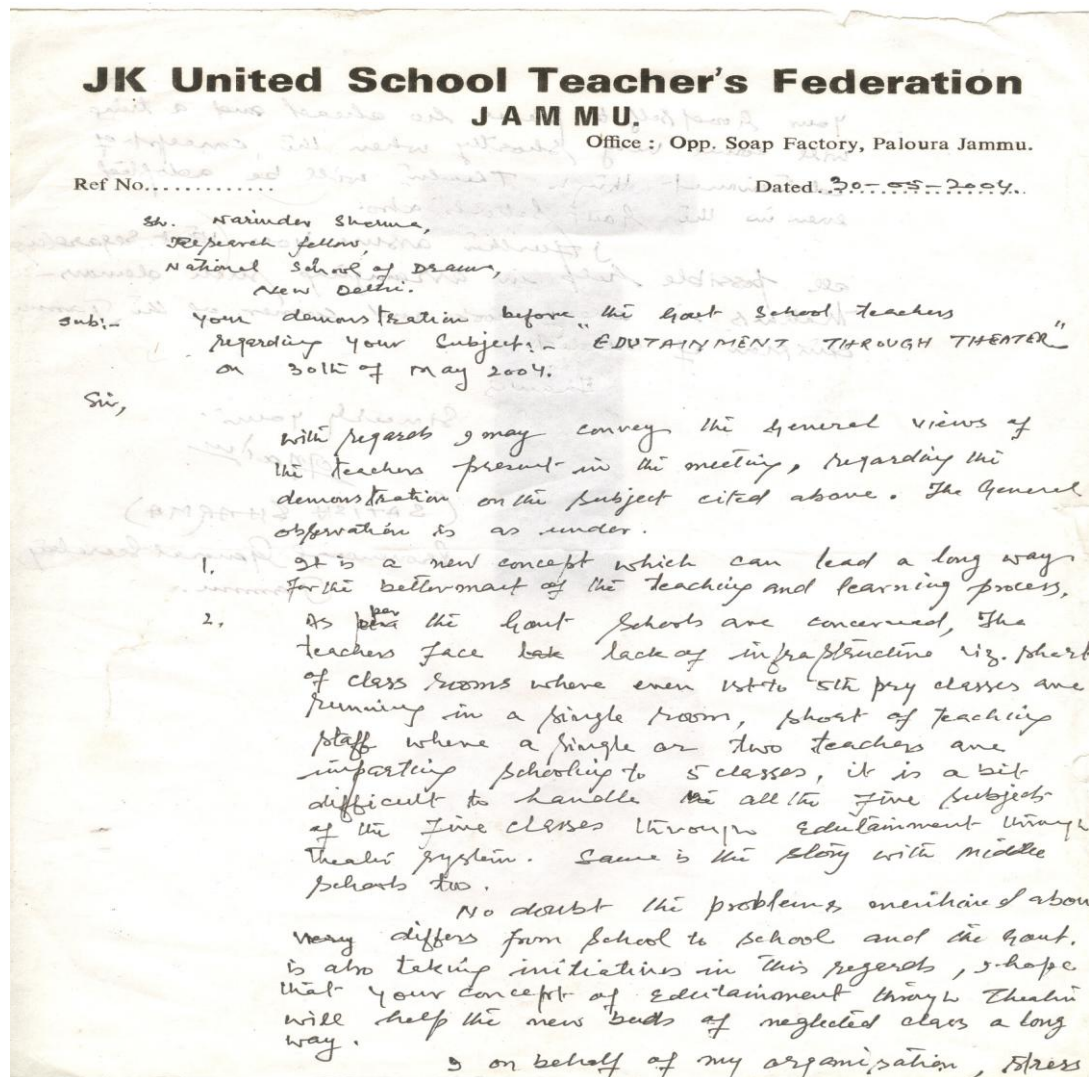 JK United School Teacher's Federation
JAMMU.
Office : Opp. Soap Factory, Paloura Jammu.
Ref No............. Dated..30-05-2004.
Sh. Narinder Sharma,
Research fellow,
National School of Drama,
New Delhi.
Sub:- Your demonstration before the Govt School teachers
regarding your Subject:- "EDUTAINMENT THROUGH THEATER"
on 30th of May 2004.
Sir,
with regards I may convey the General views of
the teachers present in the meeting, regarding the
demonstration on the subject cited above. The General
observation is as under.
1. It is a new concept which can lead a long way
for the betterment of the teaching and learning process.
2. As per the Govt Schools are concerned, The
teachers face lack of infrastructure viz. short
of class rooms where even 1st to 5th pry classes are
running in a single room, short of teaching
staff where a single or two teachers are
imparting schooling to 5 classes, it is a bit
difficult to handle all the five subjects
of the five classes through Edutainment through
Theatre system. Same is the story with Middle
Schools too.
No doubt the problems mentioned abou
very differs from School to School and the Govt.
is also taking initiatives in this regards, I hope
that your concept of Edutainment through Theatre
will help the new buds of neglected class a long
way.
I on behalf of my organisation, stress